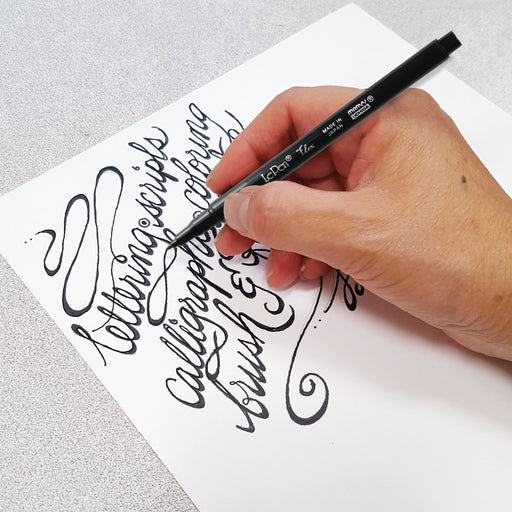 lettering scripts
calligraphy coloring
brush &
LePen® Flex
MADE IN
JAPAN
marvy®
UCHIDA